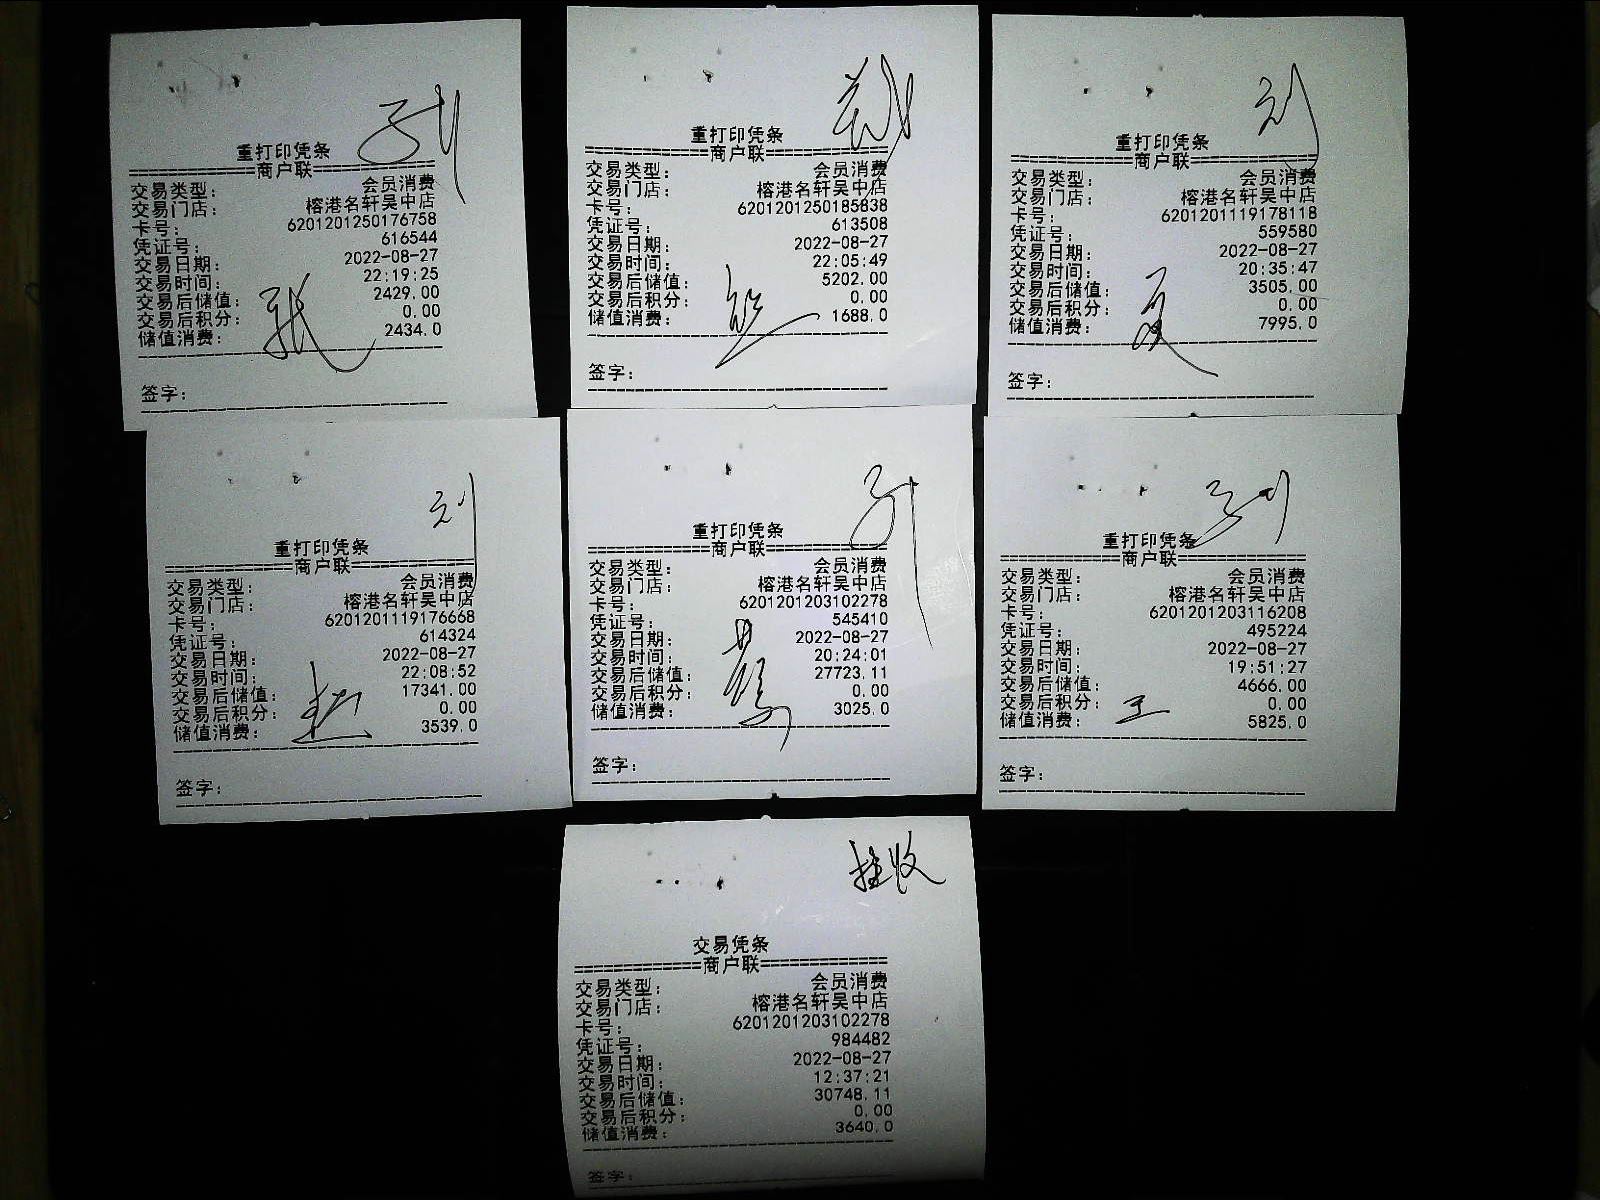 重打印凭条
商户联
交易类型： 会员消费
交易门店： 榕港名轩吴中店
卡号： 6201201250176758
凭证号： 616544
交易日期： 2022-08-27
交易时间： 22:19:25
交易后储值： 2429.00
交易后积分： 0.00
储值消费： 2434.0
签字：
重打印凭条
商户联
交易类型： 会员消费
交易门店： 榕港名轩吴中店
卡号： 6201201250185838
凭证号： 613508
交易日期： 2022-08-27
交易时间： 22:05:49
交易后储值： 5202.00
交易后积分： 0.00
储值消费： 1688.0
签字：
刘
重打印凭条
商户联
交易类型： 会员消费
交易门店： 榕港名轩吴中店
卡号： 6201201119178118
凭证号： 559580
交易日期： 2022-08-27
交易时间： 20:35:47
交易后储值： 3505.00
交易后积分： 0.00
储值消费： 7995.0
夏
签字：
刘
重打印凭条
商户联
交易类型： 会员消费
交易门店： 榕港名轩吴中店
卡号： 6201201119176668
凭证号： 614324
交易日期： 2022-08-27
交易时间： 22:08:52
交易后储值： 17341.00
交易后积分： 0.00
储值消费： 3539.0
签字：
重打印凭条
商户联
交易类型： 会员消费
交易门店： 榕港名轩吴中店
卡号： 6201201203102278
凭证号： 545410
交易日期： 2022-08-27
交易时间： 20:24:01
交易后储值： 27723.11
交易后积分： 0.00
储值消费： 3025.0
签字：
刘
重打印凭条
商户联
交易类型： 会员消费
交易门店： 榕港名轩吴中店
卡号： 6201201203116208
凭证号： 495224
交易日期： 2022-08-27
交易时间： 19:51:27
交易后储值： 4666.00
交易后积分： 0.00
王
储值消费： 5825.0
签字：
挂收
交易凭条
商户联
交易类型： 会员消费
交易门店： 榕港名轩吴中店
卡号： 6201201203102278
凭证号： 984482
交易日期： 2022-08-27
交易时间： 12:37:21
交易后储值： 30748.11
交易后积分： 0.00
储值消费： 3640.0
签字：